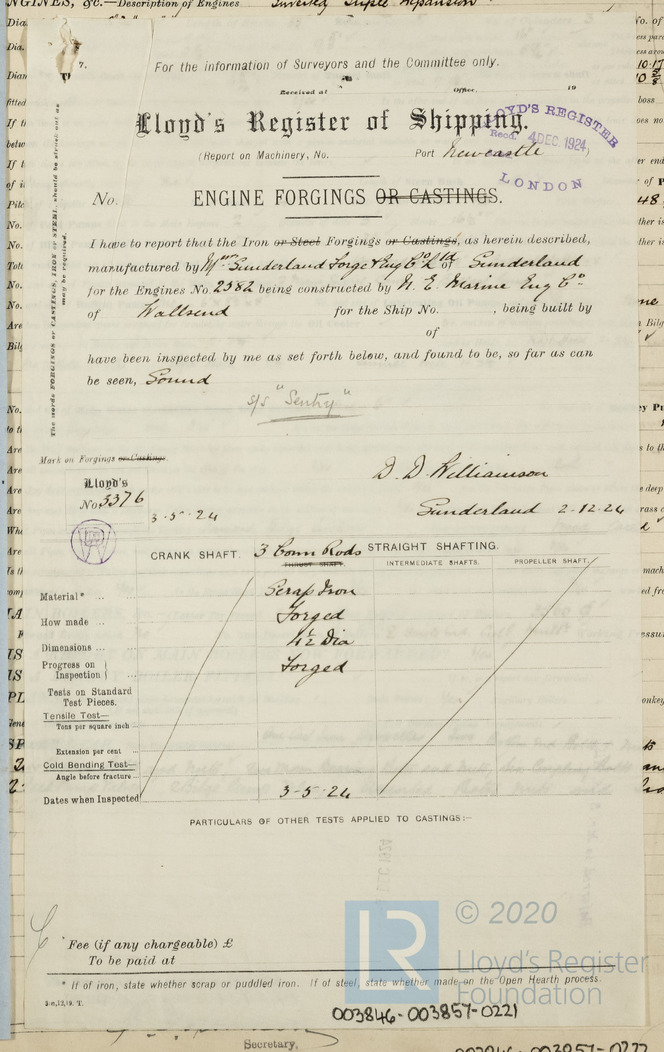 7.
For the information of Surveyors and the Committee only.
Received at Office, 19
Lloyd's Register of Shipping.
LLOYD'S REGISTER
Recd. 4 DEC. 1924
LONDON
(Report on Machinery, No. Port Newcastle
No. ENGINE FORGINGS OR CASTINGS.
The words FORGINGS or CASTINGS, IRON or STEEL, should be struck out as may be required.
I have to report that the Iron or Steel Forgings or Castings, as herein described,
manufactured by Sunderland Forge & Eng Co Ld of Sunderland
for the Engines No 2582 being constructed by N. E. Marine Eng Co
of Wallsend for the Ship No. , being built by
of
have been inspected by me as set forth below, and found to be, so far as can
be seen, Sound
s/s "Sentry"
Mark on Forgings or Castings.
D. D. Williamson
Lloyd's
No 3376
3-5-24
Sunderland 2-12-24
CRANK SHAFT. 3 Conn Rods STRAIGHT SHAFTING.
THRUST SHAFT. INTERMEDIATE SHAFTS. PROPELLER SHAFT.
Material* Scrap Iron
How made Forged
Dimensions 4½ Dia
Progress on Inspection Forged
Tests on Standard
Test Pieces.
Tensile Test—
Tons per square inch
Extension per cent
Cold Bending Test—
Angle before fracture
Dates when Inspected 3-5-24
PARTICULARS OF OTHER TESTS APPLIED TO CASTINGS:-
Fee (if any chargeable) £
To be paid at
* If of iron, state whether scrap or puddled iron. If of steel, state whether made on the Open Hearth process.
2m,12,19. T.
LR
© 2020
Lloyd's Register
Foundation
003846-003857-0221
Secretary.